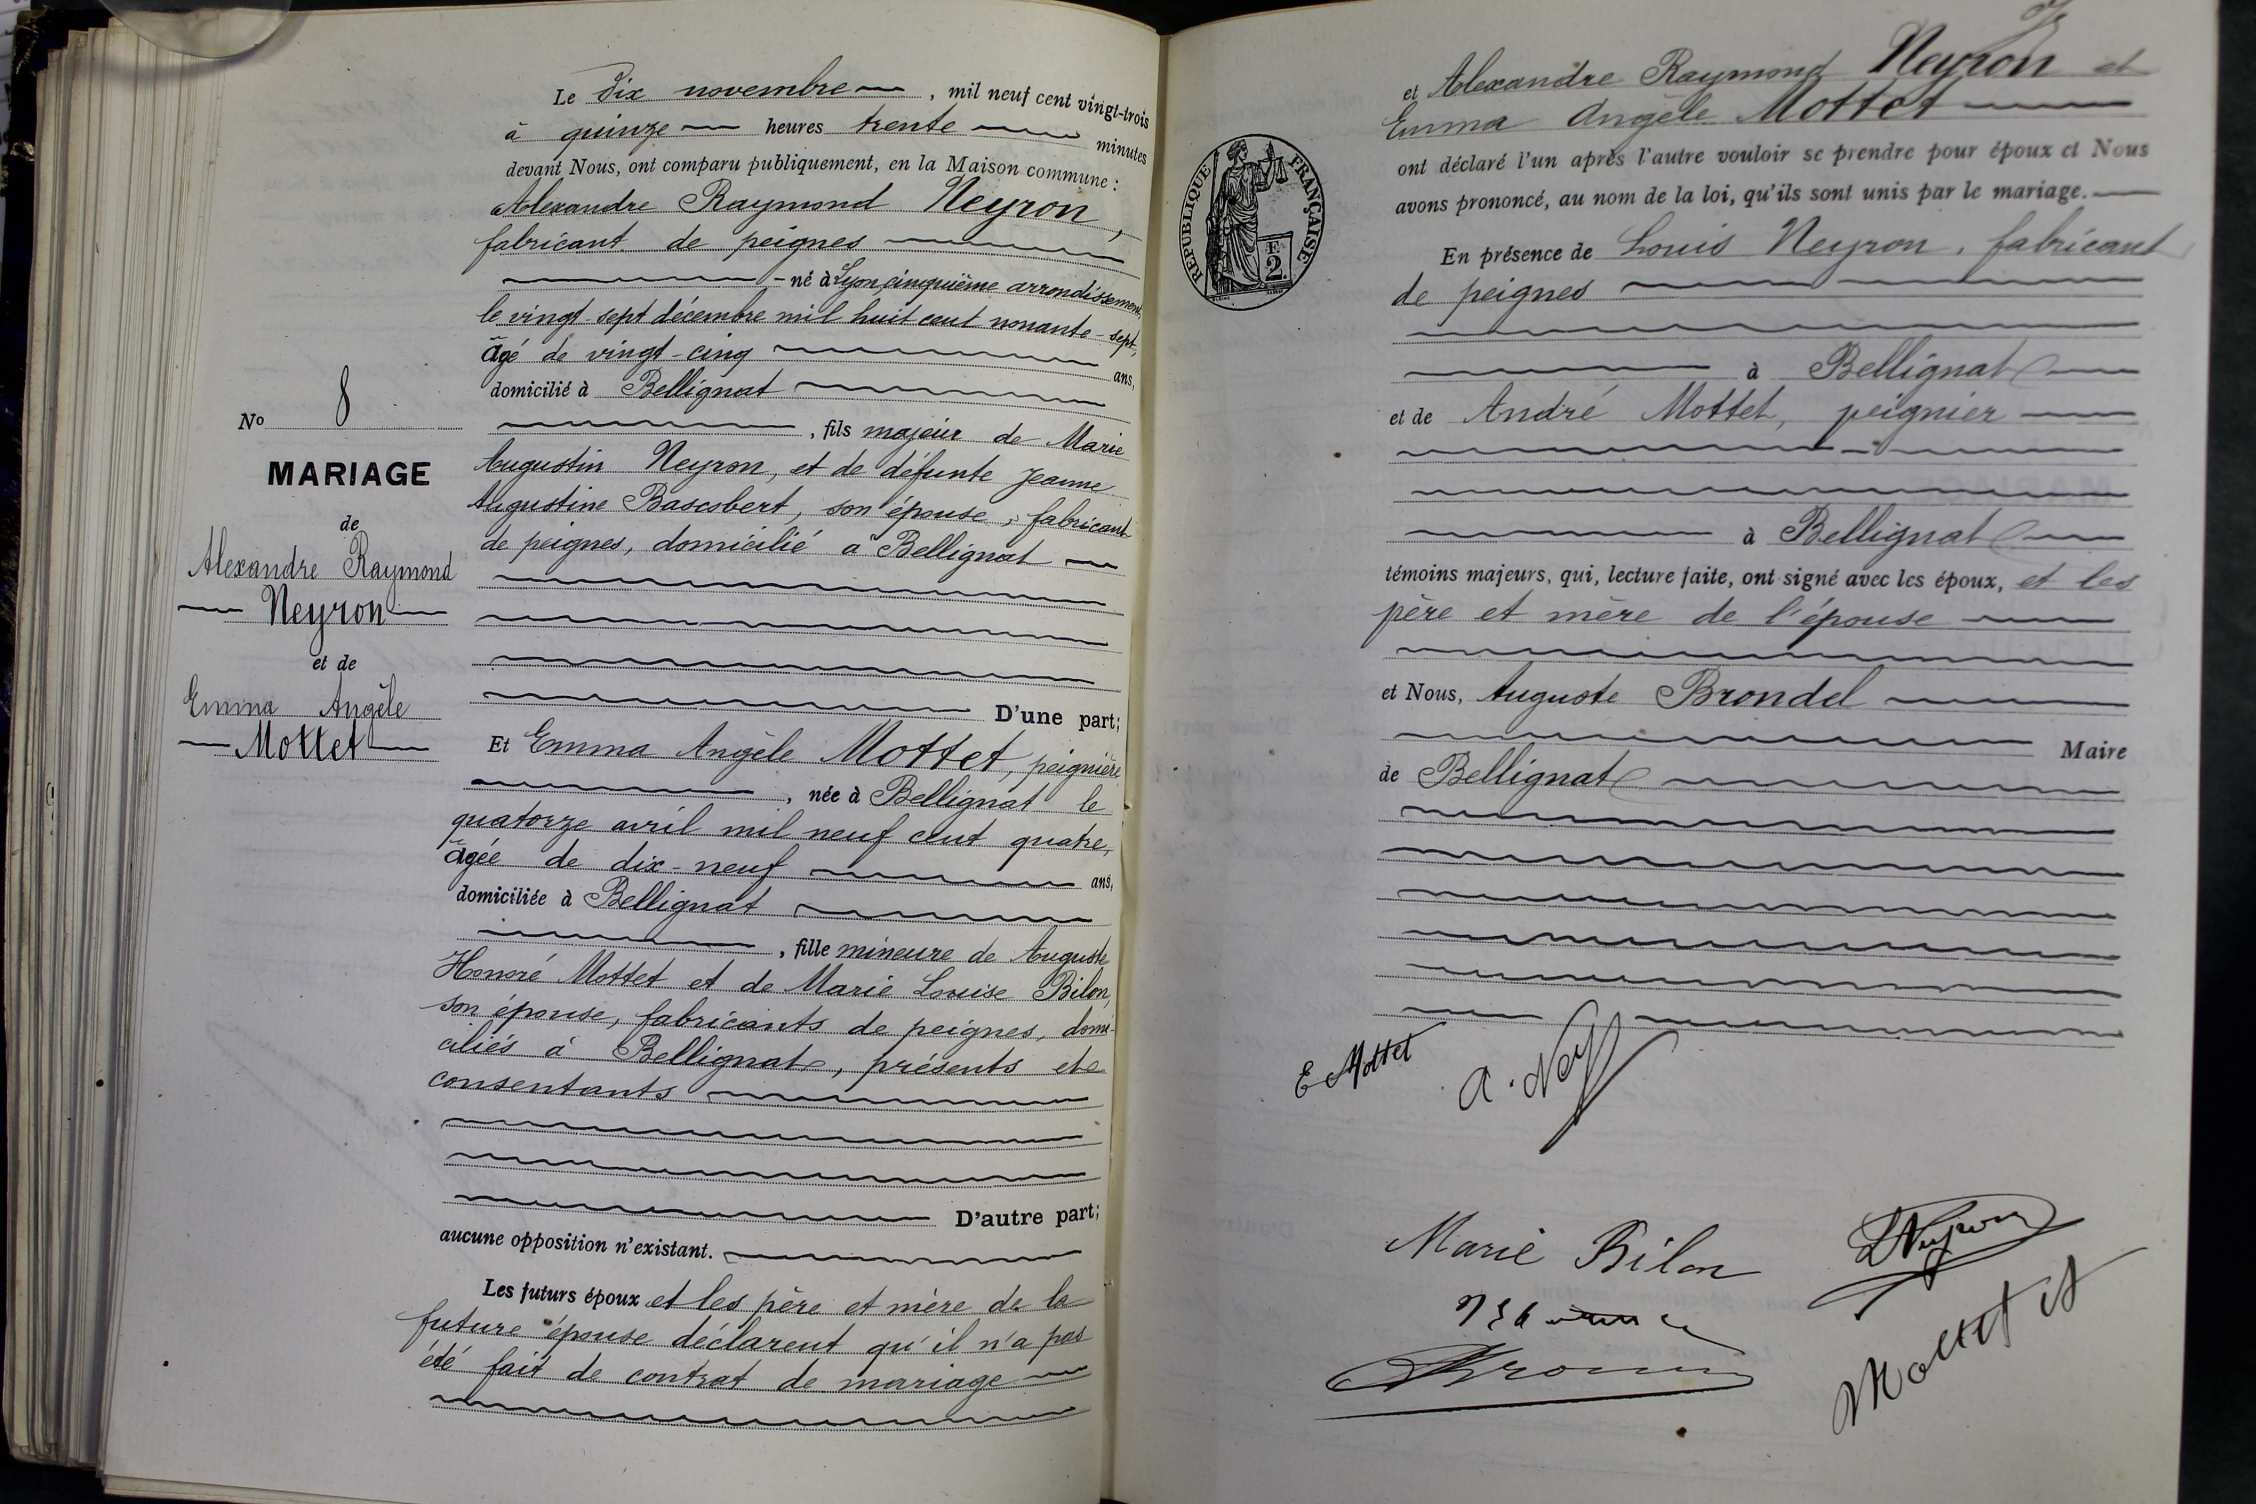 Le dix novembre, mil neuf cent vingt-trois
à quinze heures trente minutes
devant Nous, ont comparu publiquement, en la Maison commune :
Alexandre Raymond Neyron,
fabricant de peignes
né à Lyon cinquième arrondissement,
le vingt-sept décembre mil huit cent nonante-sept,
âgé de vingt-cinq ans,
domicilié à Bellignat
, fils majeur de Marie
Augustin Neyron, et de défunte Jeanne
Augustine Bascobert, son épouse, fabricant
de peignes, domicilié à Bellignat
D'une part;
Et Emma Angèle Mottet, peignière
, née à Bellignat le
quatorze avril mil neuf cent quatre,
âgée de dix-neuf ans,
domiciliée à Bellignat
, fille mineure de Auguste
Honoré Mottet et de Marie Louise Bilon,
son épouse, fabricants de peignes, domi-
ciliés à Bellignat, présents et
consentants
D'autre part;
aucune opposition n'existant.
Les futurs époux et les père et mère de la
future épouse déclarent qu'il n'a pas
été fait de contrat de mariage
No 8
MARIAGE
de
Alexandre Raymond
Neyron
et de
Emma Angèle
Mottet
et Alexandre Raymond Neyron et
Emma Angèle Mottet
ont déclaré l'un après l'autre vouloir se prendre pour époux et Nous
avons prononcé, au nom de la loi, qu'ils sont unis par le mariage.
RÉPUBLIQUE FRANÇAISE
2
En présence de Louis Neyron, fabricant
de peignes
à Bellignat
et de André Mottet, peignier
à Bellignat
témoins majeurs, qui, lecture faite, ont signé avec les époux, et les
père et mère de l'épouse
et Nous, Auguste Brondel
Maire
de Bellignat
E Mottet
A. Ney
Marie Bilon
LNeyron
Mottet